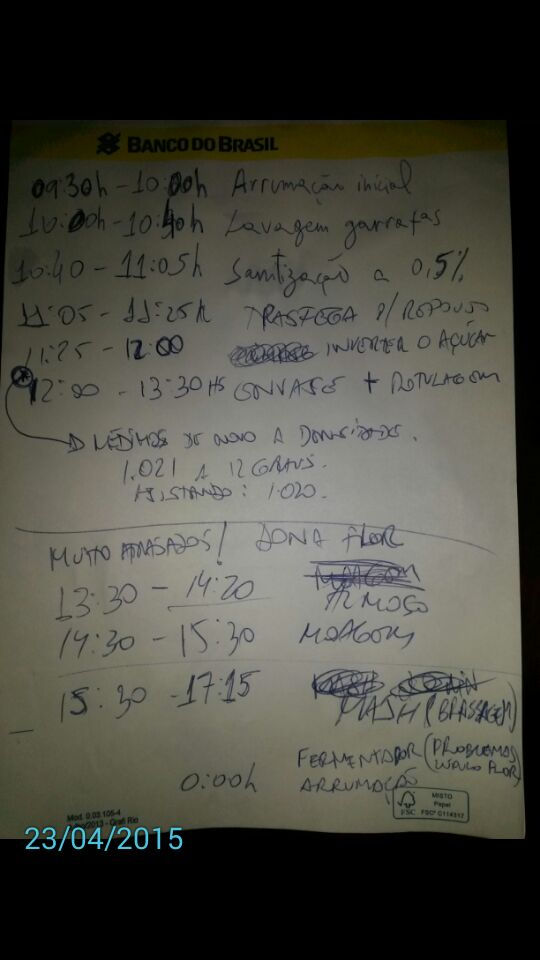 BANCO DO BRASIL
09:30h - 10:00h Arrumação inicial
10:00h - 10:40h Lavagem garrafas
10:40 - 11:05h Sanitização a 0,5%
11:05 - 11:25h TRASFEGA P/ REPOUSO
11:25 - 12:00 INVERTER O AÇÚCAR
12:00 - 13:30 HS ENVASE + ROTULAGEM
MEDIMOS DE NOVO A DENSIDADE.
1.021 A 12 GRAUS.
AJUSTANDO: 1.020.
MUITO ATRASADOS! DONA FLOR
13:30 - 14:20 ALMOÇO
14:30 - 15:30 MOAGEM
15:30 - 17:15 MASH (BRASSAGEM)
FERMENTADOR (PROBLEMAS FLOR)
0:00h ARRUMAÇÃO
Mod. 0.03.105-4
/2013 - Grafi Rio
MISTO
Papel
FSC FSC® C114317
23/04/2015